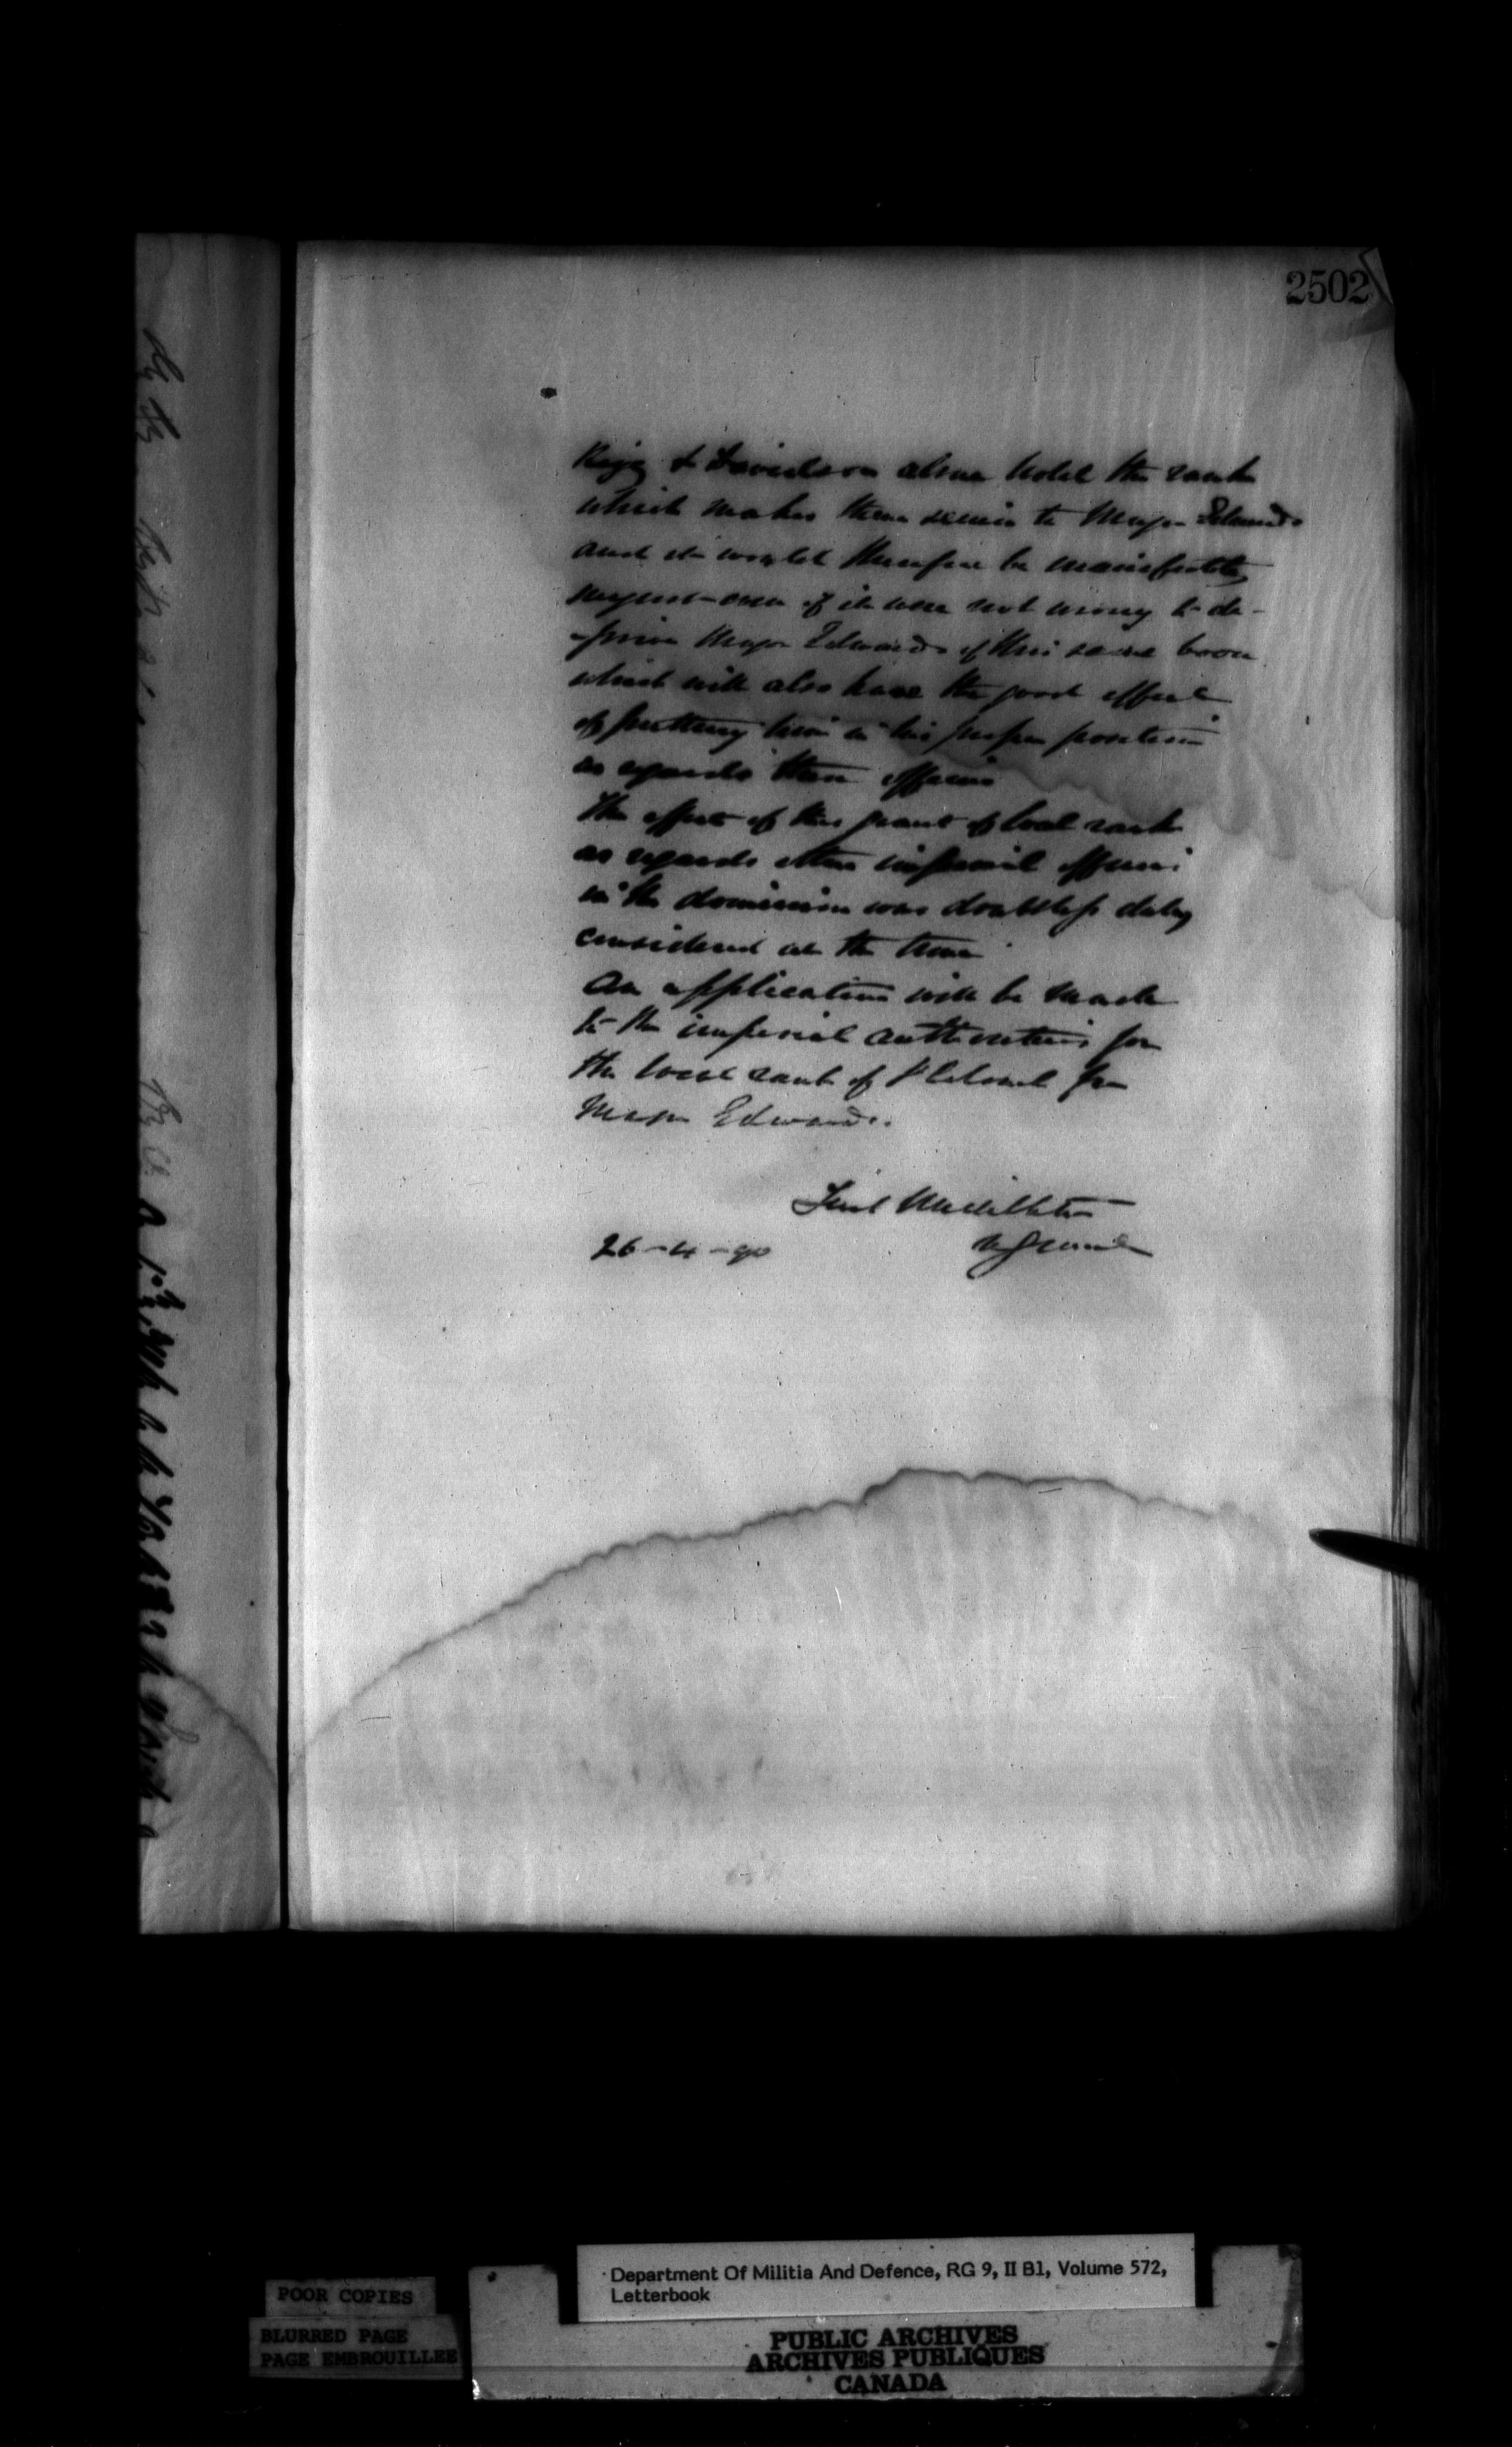 2502
& Davidson alone hold the rank
which makes them senior to Major Edwards
and it would therefore be manifestly
unjust - even if it were not wrong to de-
-prive Major Edwards of this same boon
which will also have the good effect
of putting him in his proper position
as regards these officers
The effect of this grant of local rank
as regards other imperial officers
in the dominion was doubtless duly
considered at the time
An application will be made
to the imperial authorities for
the local rank of Lt Colonel for
Major Edwards.
Fred Middleton
M General
26-4-90
Department Of Militia And Defence, RG 9, II B1, Volume 572,
Letterbook
POOR COPIES
BLURRED PAGE
PAGE EMBROUILLEE
PUBLIC ARCHIVES
ARCHIVES PUBLIQUES
CANADA